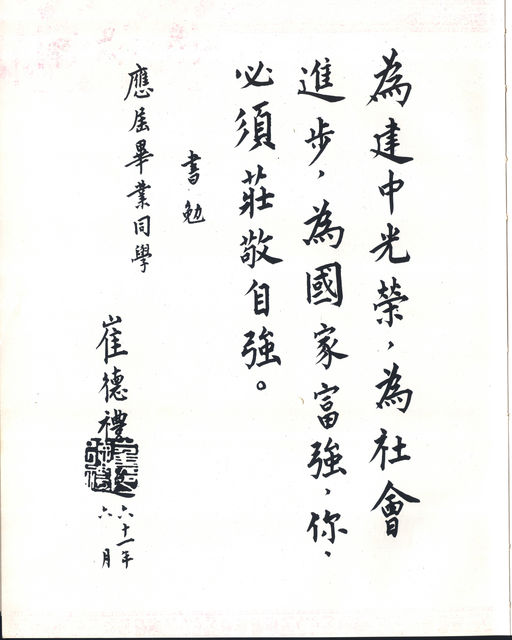 為建中光榮，為社會
進步，為國家富強，你，
必須莊敬自強。
書勉
應屆畢業同學
崔德禮
六十一年
六月